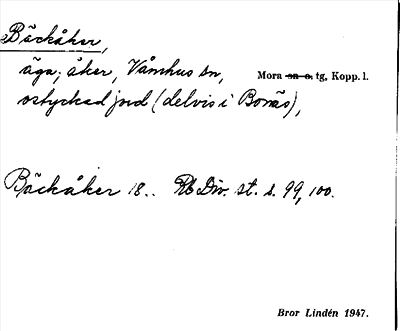 Bäckåker,
äga; åker, Våmhus sn, Mora sn o. tg, Kopp. l.
ostyckad jord (delvis i Bonäs),
Bäckåker 18.. Rb Div. st. s. 99, 100.
Bror Lindén 1947.